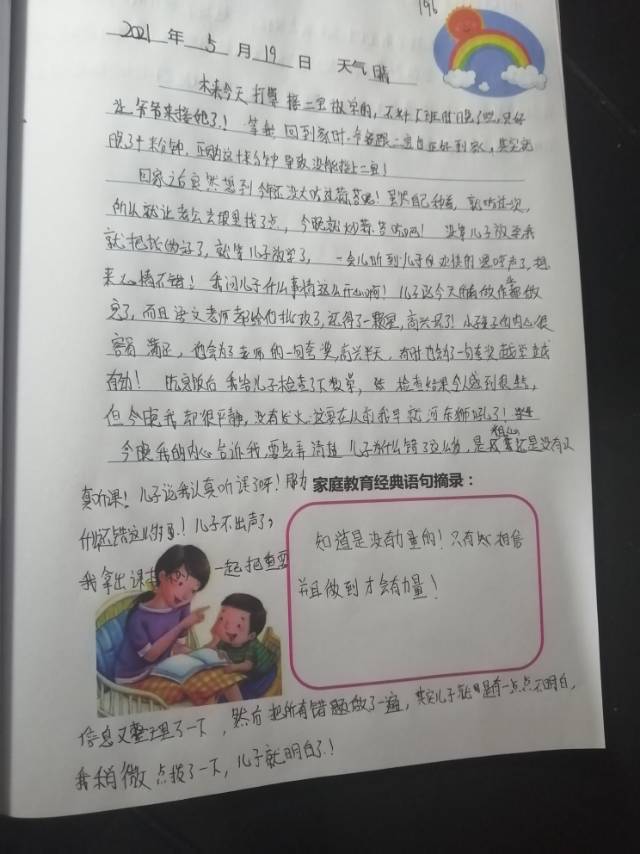 196
2021 年 5 月 19 日 天气 晴
本来今天打算接二宝放学的，不料下班时晚了些，只好
让爷爷来接她了！等我回到家时，爷爷跟二宝也正好到家，其实就
晚了十来分钟，正因这十来分钟导致没能接上二宝！
回家之后突然想到今年还没大吃过
所以就让老公去摸里找了点，今晚就炒 吃啊！没等儿子放学我
就把找的好了，就等儿子放学了，一会儿听到儿子自 的 声了，想
来心情不错！我问儿子什么事情这么开心啊！儿子说今天作业都做
完了，而且语文老师都给他批改了，还得了一颗星，高兴坏了！小孩子的内心很
容易满足，也会为了老师的一句夸奖，高兴半天，有时也会为了一句夸奖越学越
有劲！吃完饭后我给儿子检查了下数学，结果令人感到
但今晚我却很平静，没有发火，这要在从前我早就河东狮吼了！
今晚我的内心告诉我，要先弄清楚儿子为什么错了这么多，是粗心还是没有认
真听课！儿子说我认真听课了呀！那为
什么还错这么多呢！儿子不出声了，
我拿出课本 一起把重要
信息又整理了一下，然后把所有错题做了一遍，其实儿子就是有一点点不明白，
我稍微点拨了一下，儿子就明白了！
家庭教育经典语句摘录：
知道是没有力量的！只有 相信
并且做到才会有力量！